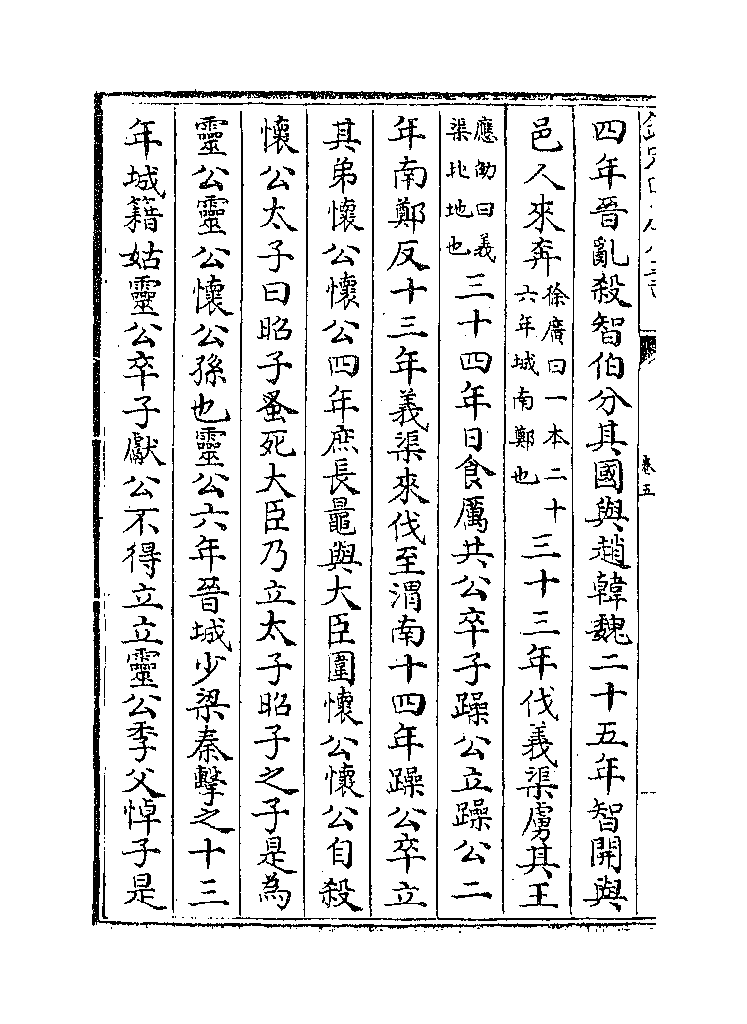 四年晉亂殺智伯分其國與趙韓魏二十五年智開與
邑人來奔
徐廣曰一本二十
六年城南鄭也
三十三年伐義渠虜其王
應劭曰義
渠北地也
三十四年日食厲共公卒子躁公立躁公二
年南鄭反十三年義渠來伐至渭南十四年躁公卒立
其弟懷公懷公四年庶長鼂與大臣圍懷公懷公自殺
懷公太子曰昭子蚤死大臣乃立太子昭子之子是為
靈公靈公懷公孫也靈公六年晉城少梁秦擊之十三
年城籍姑靈公卒子獻公不得立立靈公季父悼子是
卷五